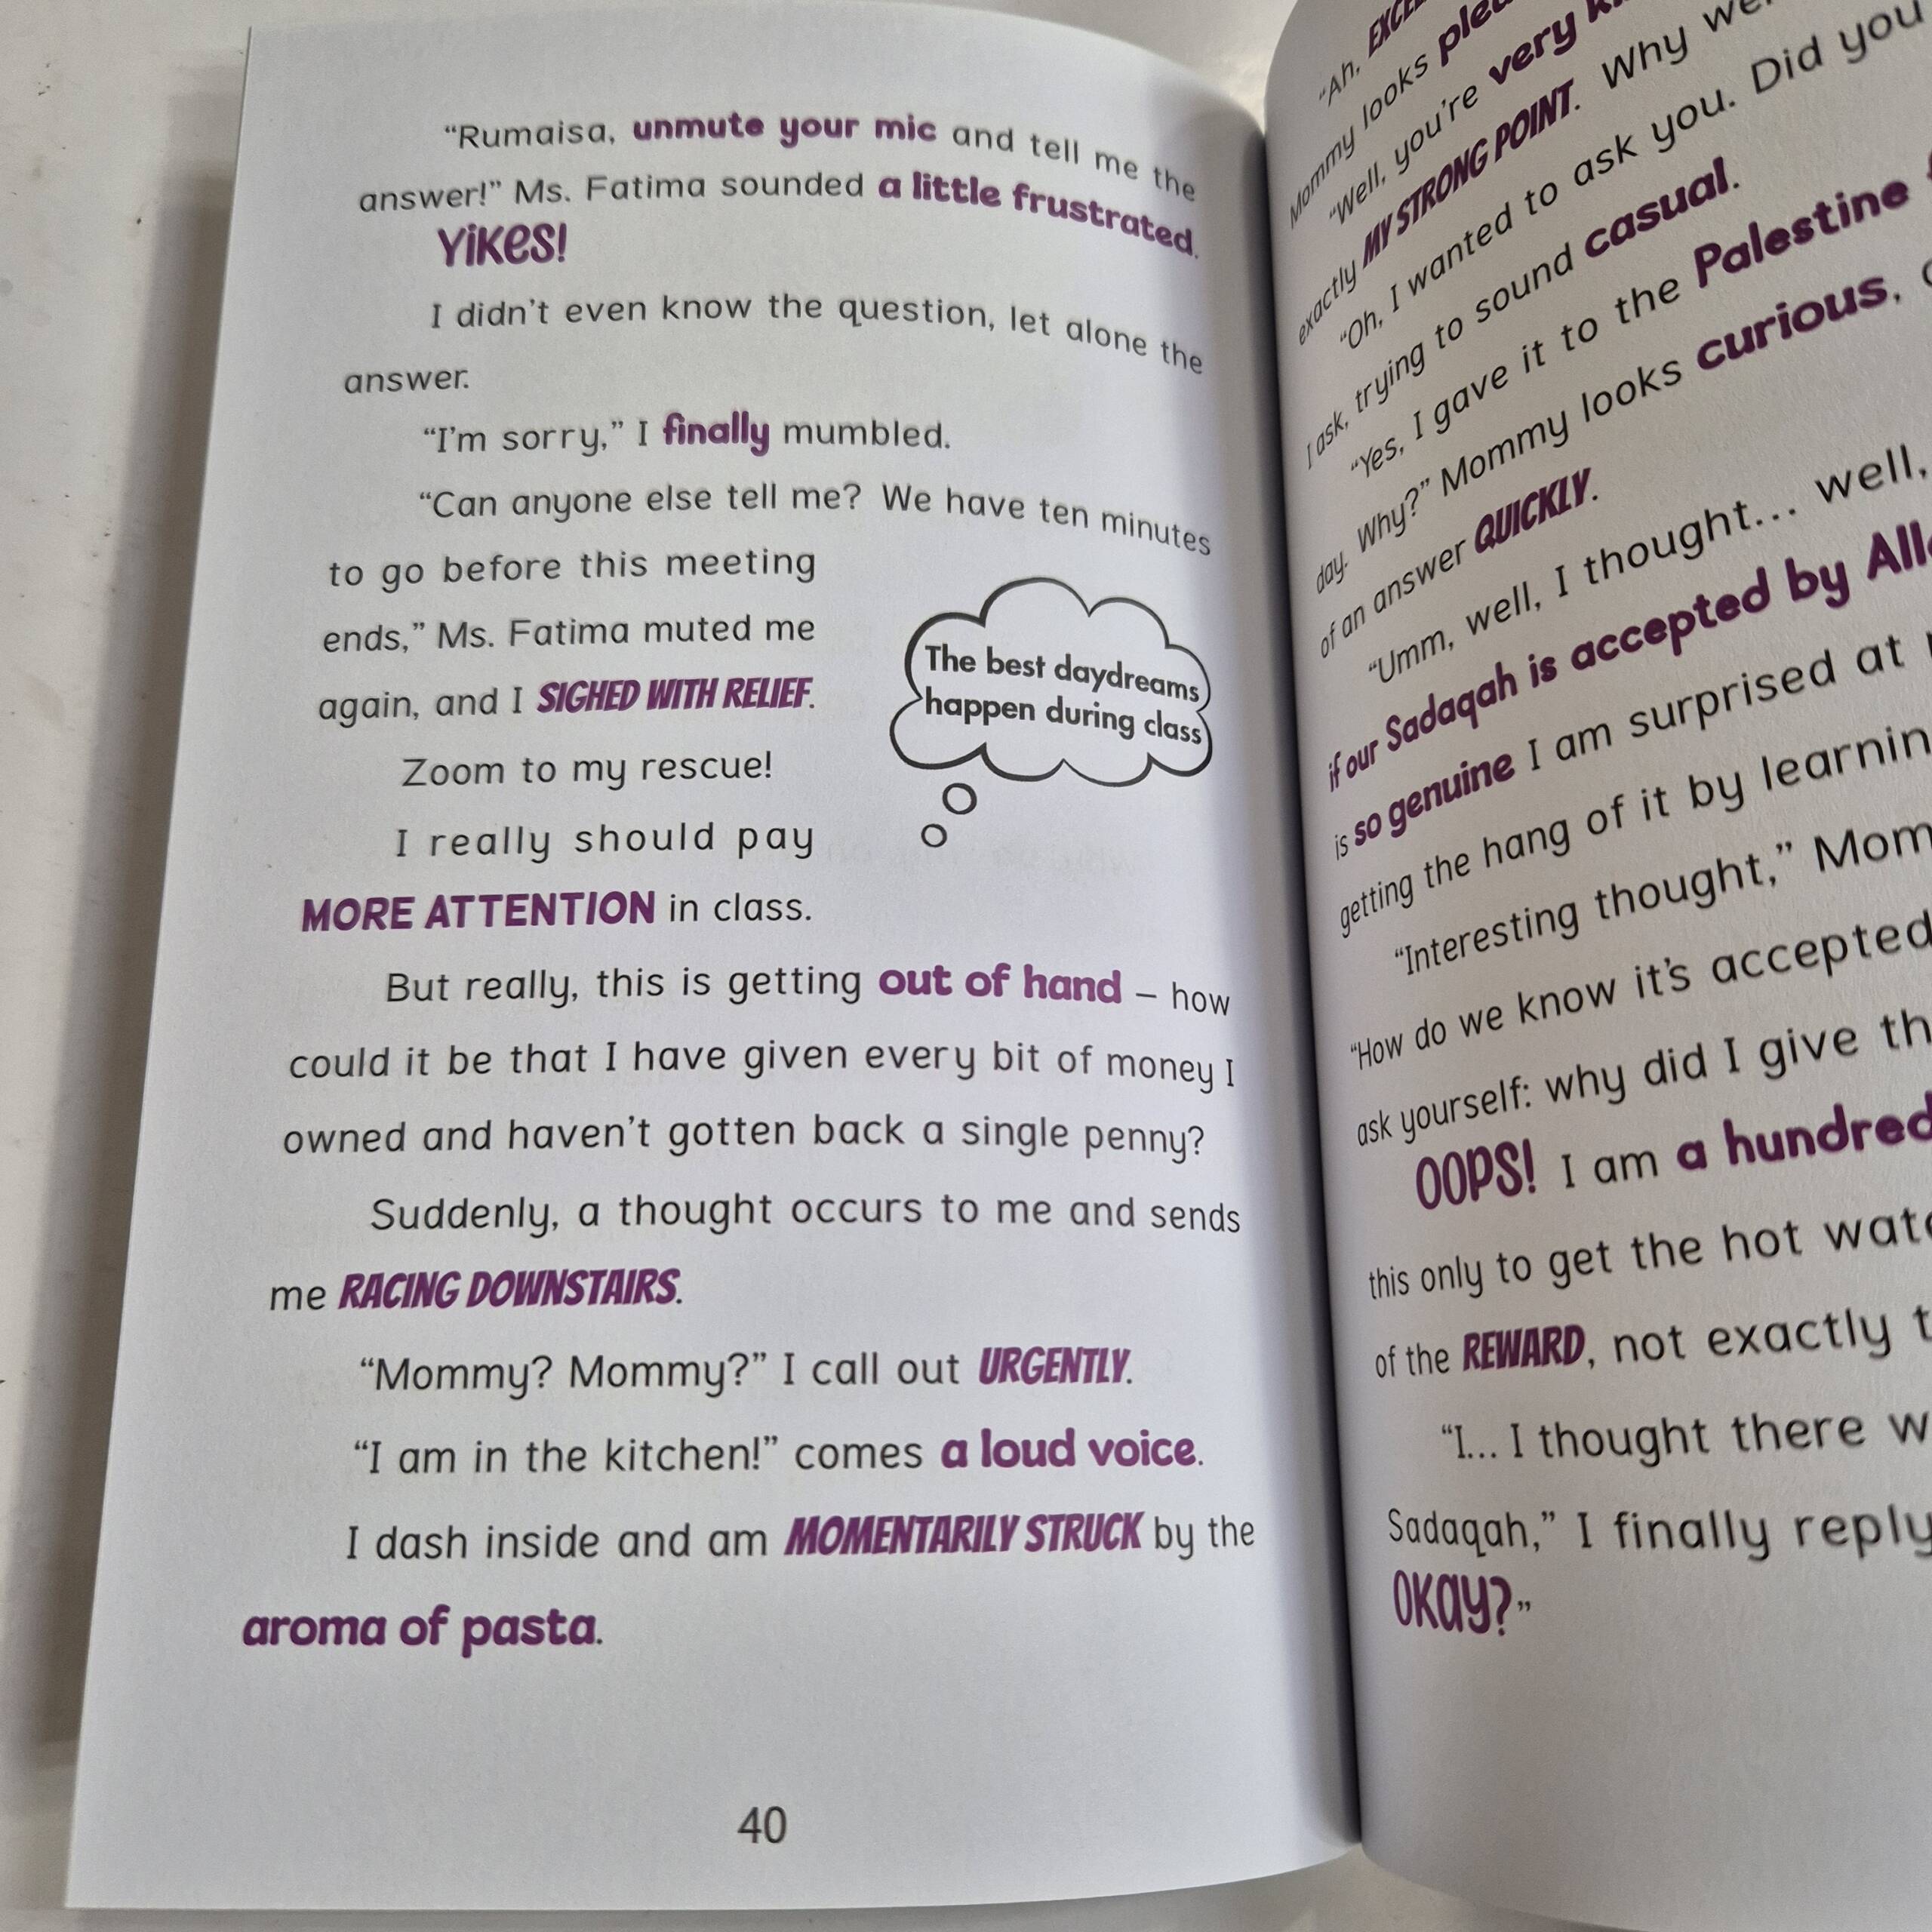 “Rumaisa, unmute your mic and tell me the
answer!” Ms. Fatima sounded a little frustrated.
YiKes!
I didn’t even know the question, let alone the
answer.
“I’m sorry,” I finally mumbled.
“Can anyone else tell me? We have ten minutes
to go before this meeting
ends,” Ms. Fatima muted me
again, and I SIGHED WITH RELIEF.
Zoom to my rescue!
I really should pay
MORE ATTENTION in class.
The best daydreams
happen during class
But really, this is getting out of hand – how
could it be that I have given every bit of money I
owned and haven’t gotten back a single penny?
Suddenly, a thought occurs to me and sends
me RACING DOWNSTAIRS.
“Mommy? Mommy?” I call out URGENTLY.
“I am in the kitchen!” comes a loud voice.
I dash inside and am MOMENTARILY STRUCK by the
aroma of pasta.
40
“Ah,
Mommy looks
“Well, you’re very
exactly MY STRONG POINT. Why
“Oh, I wanted to ask you. Did you
I ask, trying to sound casual.
“Yes, I gave it to the Palestine
day. Why?” Mommy looks curious,
of an answer QUICKLY.
“Umm, well, I thought... well,
if our Sadaqah is accepted by
is so genuine I am surprised at
getting the hang of it by
“Interesting thought,”
“How do we know it’s accepted
ask yourself: why did I give
OOPS! I am a hundred
this only to get the hot
of the REWARD, not exactly
“I... I thought there
Sadaqah,” I finally reply
OKay?”